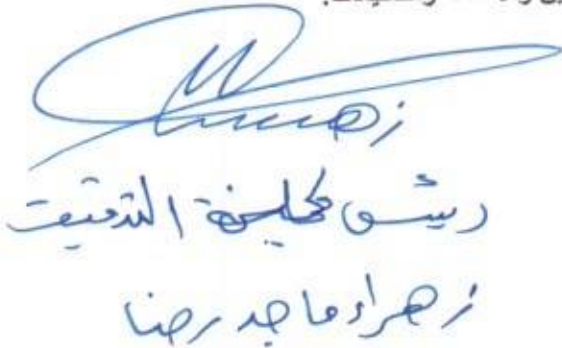 زهـ
رئيس لجنة التدقيق
زهراء ماجد رضا